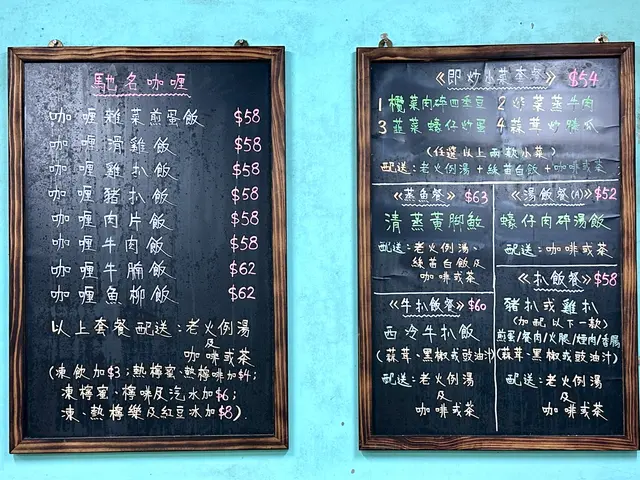 馳名咖喱
咖喱雜菜煎蛋飯 $58
咖喱滑雞飯 $58
咖喱雞扒飯 $58
咖喱豬扒飯 $58
咖喱肉片飯 $58
咖喱牛肉飯 $58
咖喱牛腩飯 $62
咖喱魚柳飯 $62
以上套餐配送:老火例湯
及
咖啡或茶
(凍飲加$3;熱檸蜜、熱檸啡加$4;
凍檸蜜、檸啡及汽水加$6;
凍、熱檸樂及紅豆冰加$8)
《即炒小菜套餐》 $54
1 欖菜肉碎四季豆 2 炒菜薳牛肉
3 韮菜蠔仔炒蛋 4 蒜茸炒勝瓜
(任選以上兩款小菜)
配送:老火例湯+絲苗白飯+咖啡或茶
《蒸魚餐》 $63
清蒸黃腳鱲
配送:老火例湯、
絲苗白飯及
咖啡或茶
《湯飯餐(A)》 $52
蠔仔肉碎湯飯
配送:咖啡或茶
《牛扒飯餐》 $60
西冷牛扒飯
(蒜茸、黑椒或豉油汁)
配送:老火例湯
及
咖啡或茶
《扒飯餐》 $58
豬扒或雞扒
(加配以下一款)
煎蛋/餐肉/火腿/煙肉/香腸
(蒜茸、黑椒或豉油汁)
配送:老火例湯
及
咖啡或茶